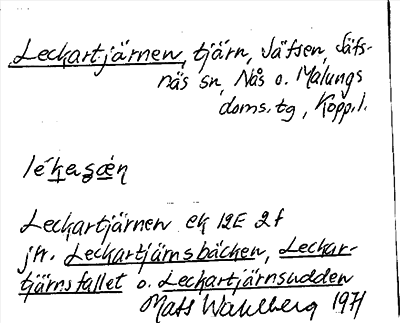 Leckartjärnen, tjärn, Jätsen, Säfs-
näs sn, Nås o. Malungs
doms.tg, Kopp.l.
Leckartjärnen ek 12E 2f
jfr. Leckartjärnsbäcken, Leckar-
tjärnsfallet o. Leckartjärnsudden
Mats Wahlberg 1971